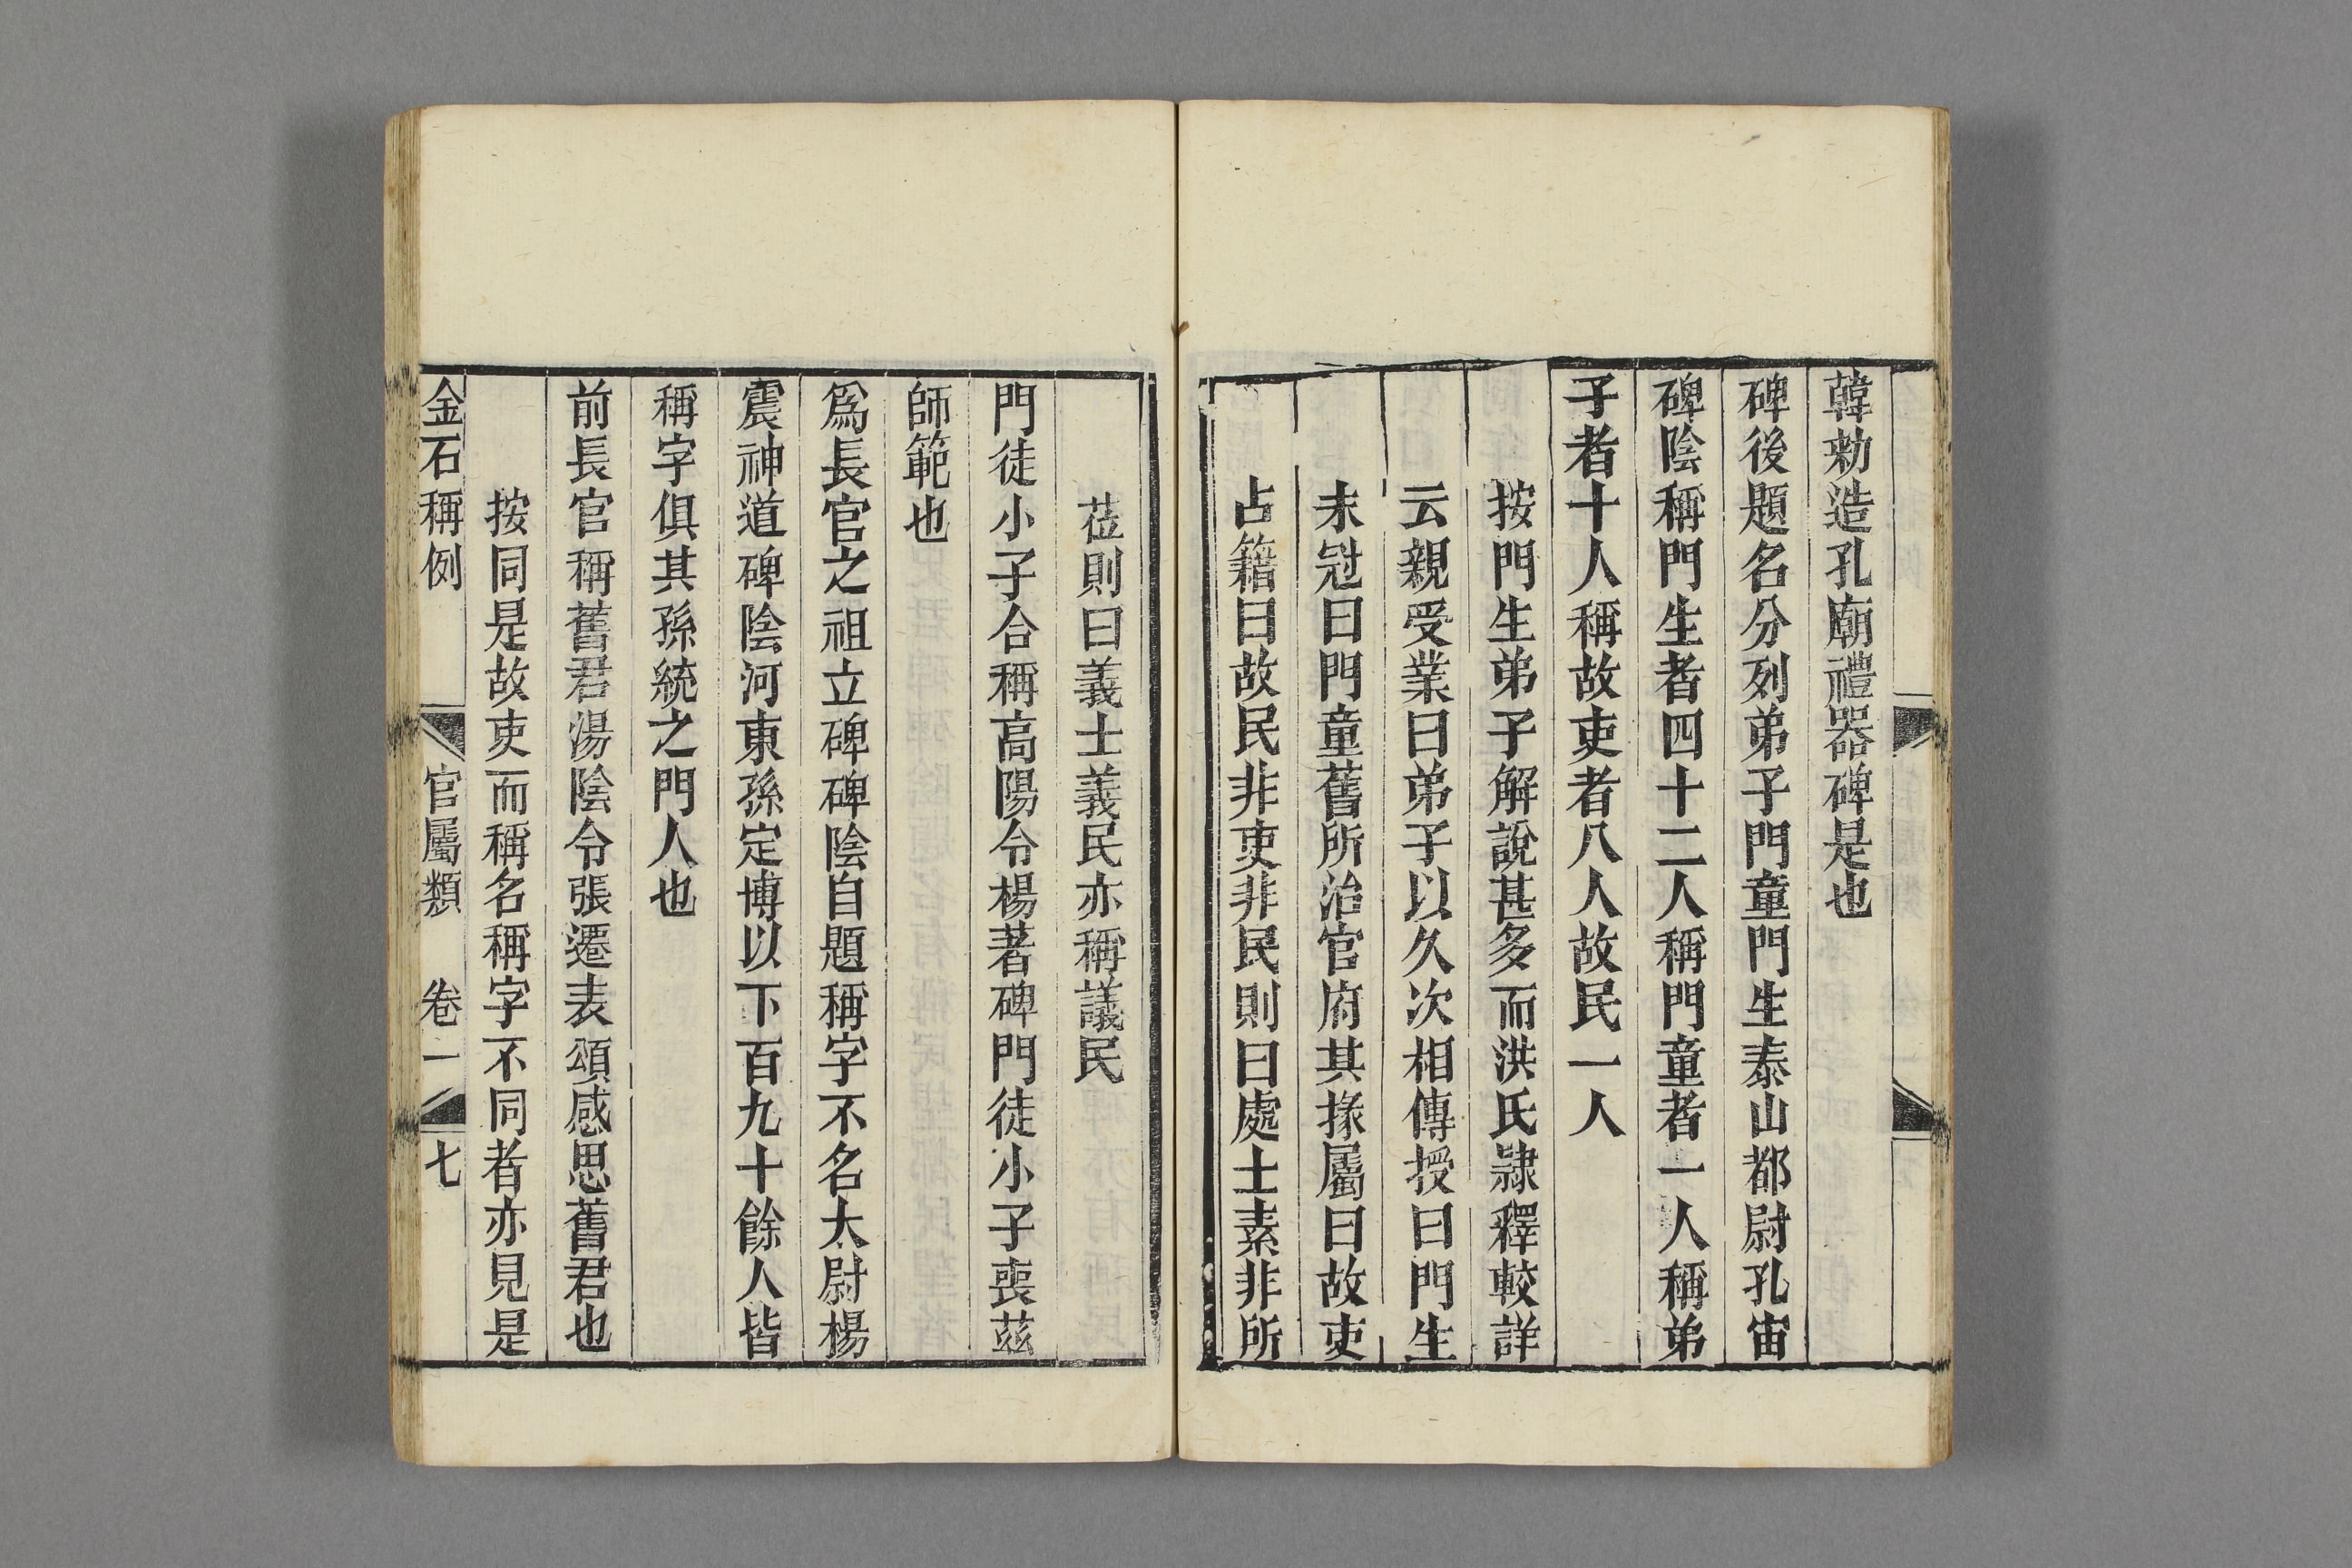 韓勑造孔廟禮器碑是也
碑後題名分列弟子門童門生泰山都尉孔宙
碑陰稱門生者四十二人稱門童者一人稱弟
子者十人稱故吏者八人故民一人
按門生弟子解說甚多而洪氏隸釋較詳
云親受業曰弟子以久次相傳授曰門生
未冠曰門童舊所治官府其掾屬曰故吏
占籍曰故民非吏非民則曰處士素非所
莅則曰義士義民亦稱議民
門徒小子合稱高陽令楊著碑門徒小子喪茲
師範也
爲長官之祖立碑碑陰自題稱字不名太尉楊
震神道碑陰河東孫定博以下百九十餘人皆
稱字俱其孫統之門人也
前長官稱舊君湯陰令張遷表頌感思舊君也
按同是故吏而稱名稱字不同者亦見是
金石稱例 官屬類 卷一 七